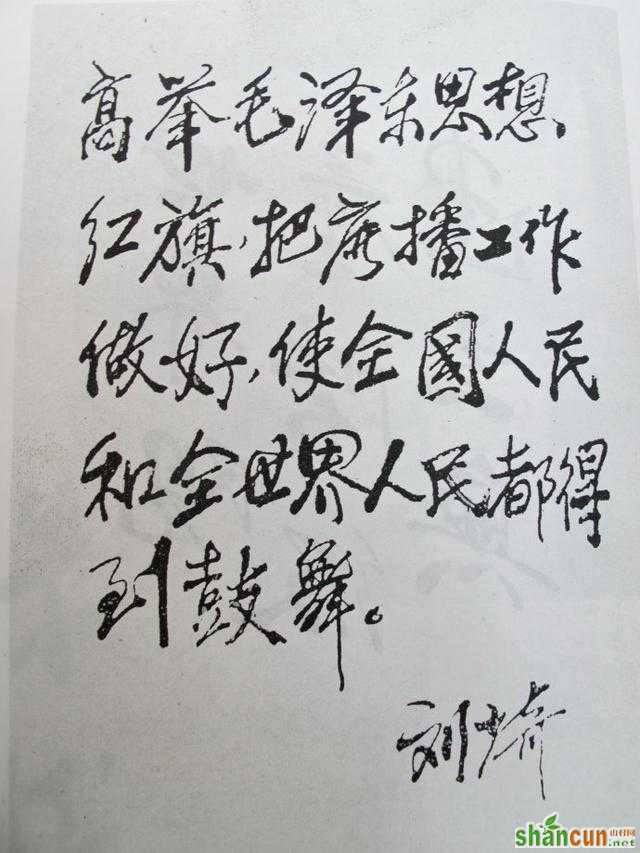 高举毛泽东思想
红旗，把广播工作
做好，使全国人民
和全世界人民都得
到鼓舞。
刘
shancun 山村网
.net